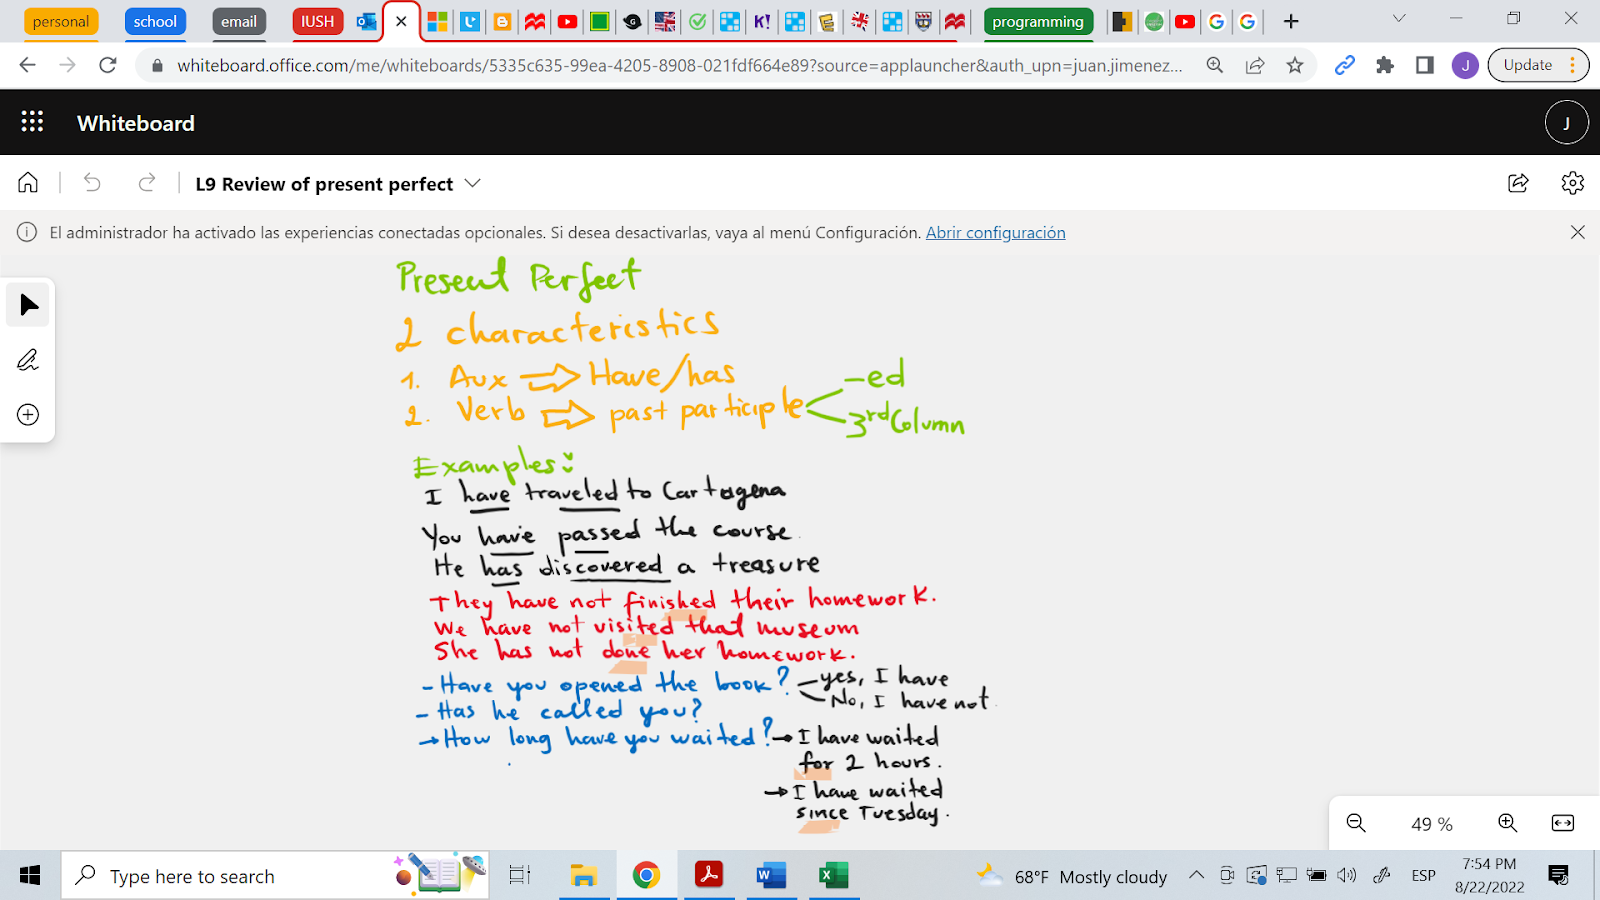 personal school email IUSH programming
whiteboard.office.com/me/whiteboards/5335c635-99ea-4205-8908-021fdf664e89?source=applauncher&auth_upn=juan.jimenez... J Update
Whiteboard J
L9 Review of present perfect
El administrador ha activado las experiencias conectadas opcionales. Si desea desactivarlas, vaya al menú Configuración. Abrir configuración
Present Perfect
2 characteristics
1. Aux ⇨ Have/has
2. Verb ⇨ past participle
-ed
3rd Column
Examples:
I have traveled to Cartagena
You have passed the course.
He has discovered a treasure
They have not finished their homework.
We have not visited that museum
She has not done her homework.
- Have you opened the book?
- yes, I have
- No, I have not.
- Has he called you?
→ How long have you waited?
→ I have waited
for 2 hours.
→ I have waited
since Tuesday.
49 %
Type here to search
68°F Mostly cloudy ESP 7:54 PM
8/22/2022